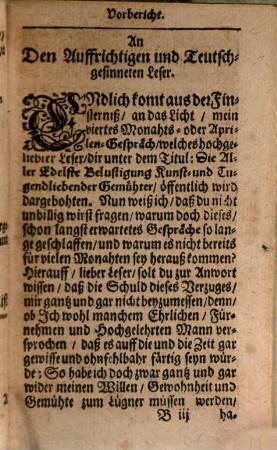 Vorbericht.
An
Den Auffrichtigen und Teutsch-
gesinneten Leser.
ENdlich komt aus der Fin-
sterniß/ an das Licht/ mein
viertes Monahts- oder Apri-
len-Gespräch/ welches hochge-
liebter Leser/ dir unter dem Titul: Die Al-
ler Edelste Belustigung Kunst- und Tu-
gendliebender Gemühter/ öffentlich wird
dargebohten. Nun weiß ich/ daß du nicht
unbillig wirst fragen/ warum doch dieses/
schon längst erwartetes Gespräche so lan-
ge geschlaffen/ und warum es nicht bereits
für vielen Monahten sey herauß kommen?
Hierauff/ lieber Leser/ solt du zur Antwort
wissen/ daß die Schuld dieses Verzuges/
mir gantz und gar nicht beyzumessen/ denn/
ob Ich wohl manchem Ehrlichen/ Für-
nehmen und Hochgelehrten Mann ver-
sprochen/ daß es auff die und die Zeit gar
gewisse und ohnfehlbahr färtig seyn wür-
de: So habe ich doch zwar gantz und gar
wider meinen Willen/ Gewohnheit und
Gemühte zum Lügner müssen werden/
B iij
ha.